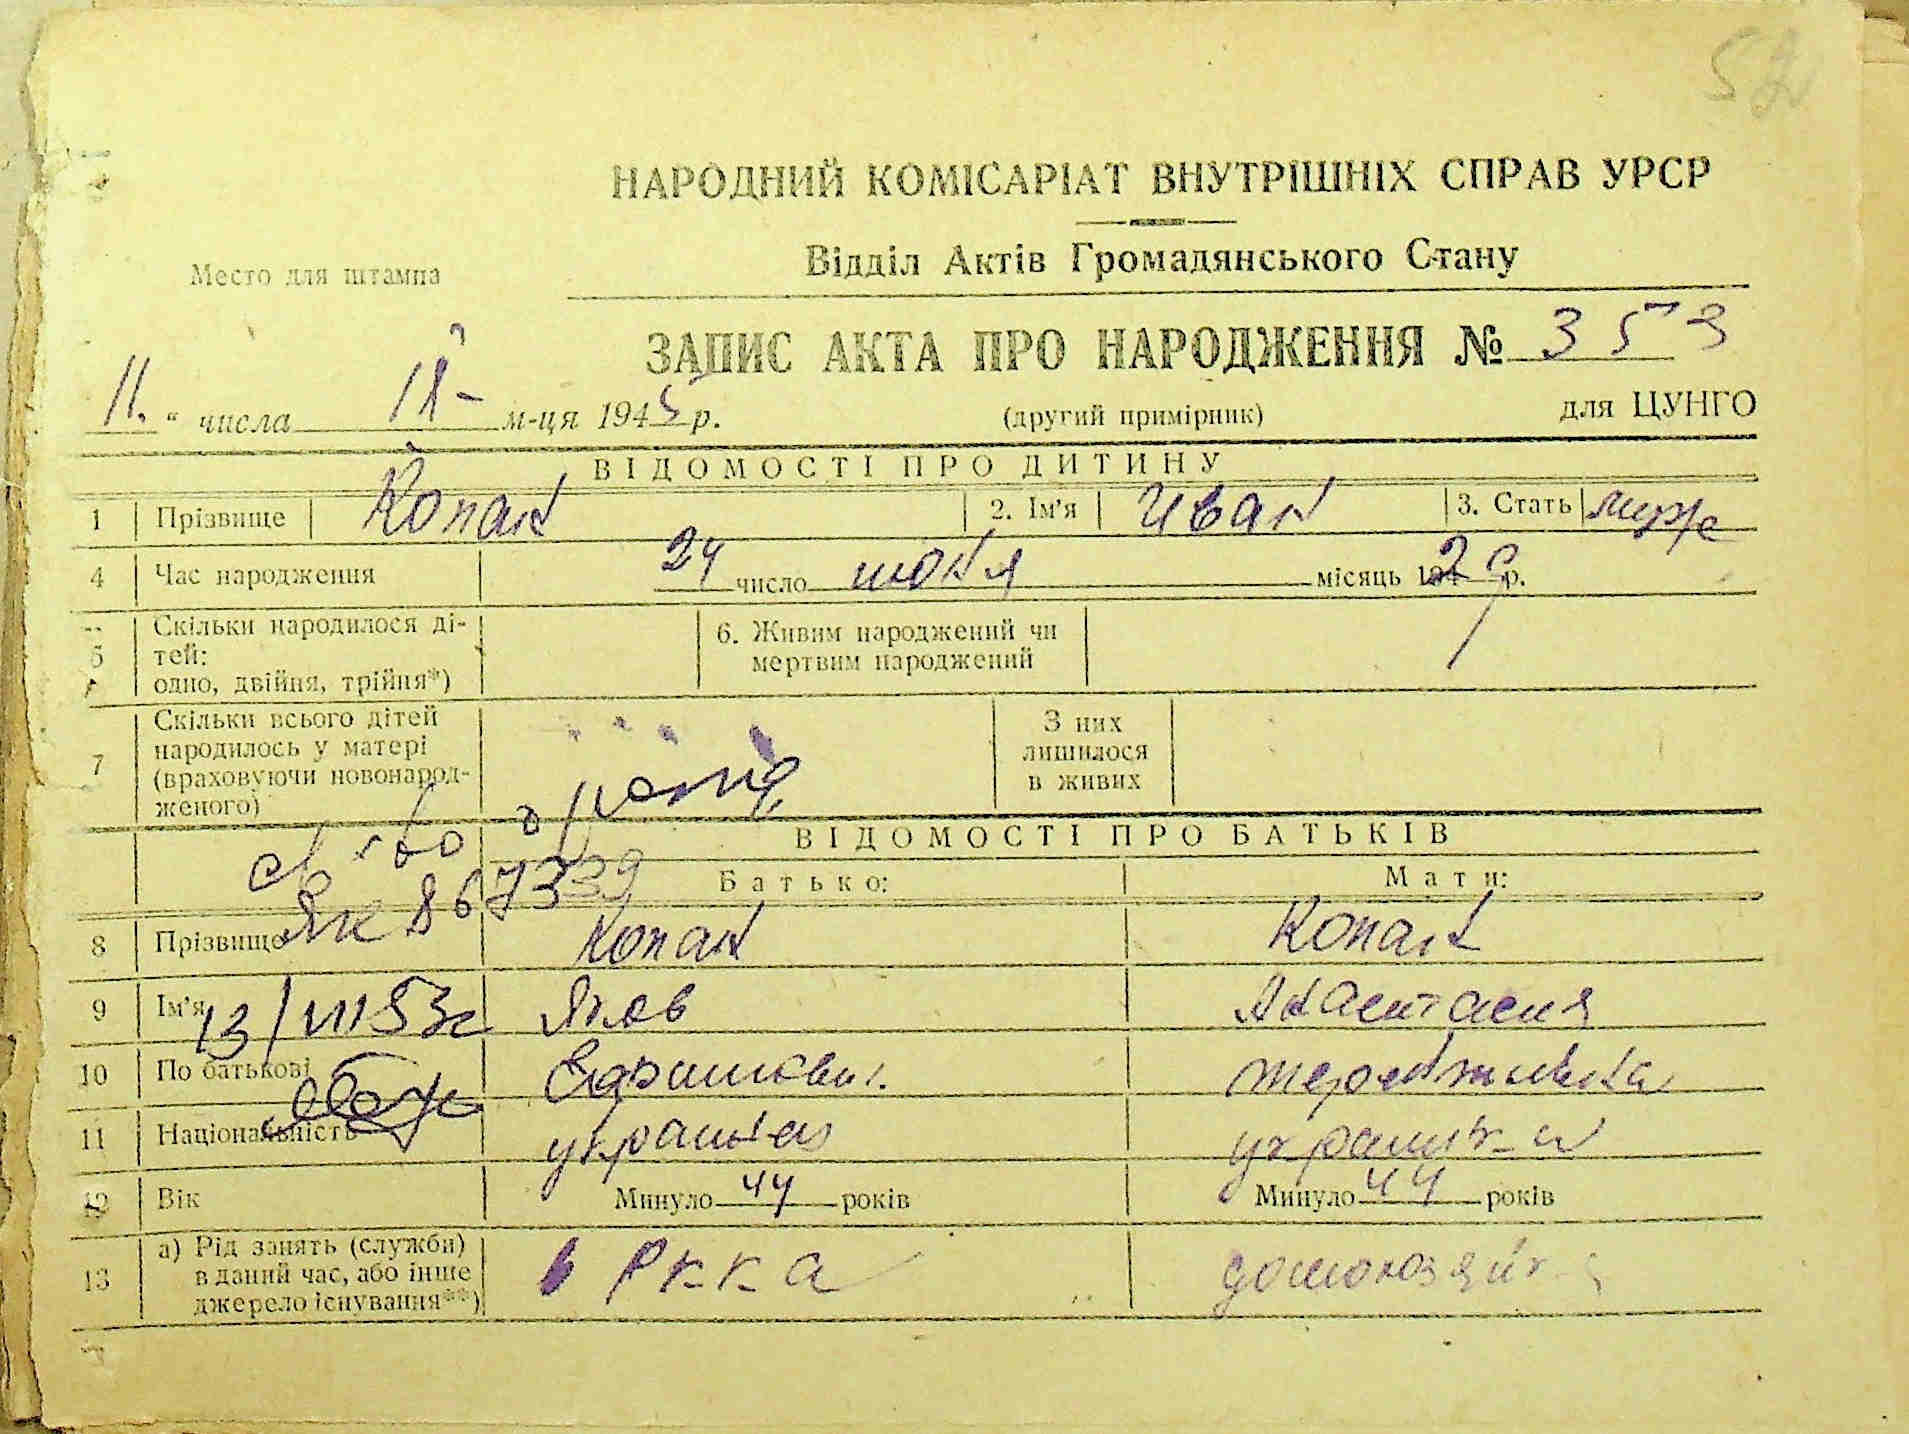 52
НАРОДНИЙ КОМІСАРІАТ ВНУТРІШНІХ СПРАВ УРСР
Відділ Актів Громадянського Стану
Место для штампа
ЗАПИС АКТА ПРО НАРОДЖЕННЯ № 353
11. " числа IX- м-ця 1945 р.
(другий примірник) для ЦУНГО
ВІДОМОСТІ ПРО ДИТИНУ
1 Прізвище Копан 2. Ім'я Иван 3. Стать муж
4 Час народження 24 число июня місяць 1929 р.
5 Скільки народилося ді-
тей:
одно, двійня, трійня*)
6. Живим народжений чи
мертвим народжений
7 Скільки всього дітей
народилось у матері
(враховуючи новонарод-
женого)
З них
лишилося
в живих
ВІДОМОСТІ ПРО БАТЬКІВ
Батько: Мати:
867339
8 Прізвище Копан Копан
9 Ім'я Яков Анастасия
13/VIII 53г
10 По батькові Терентьевна
11 Національність украинец украинка
12 Вік Минуло 44 років Минуло 44 років
13 а) Рід занять (служби)
в даний час, або інше
джерело існування**)
в РККА домохозяйка